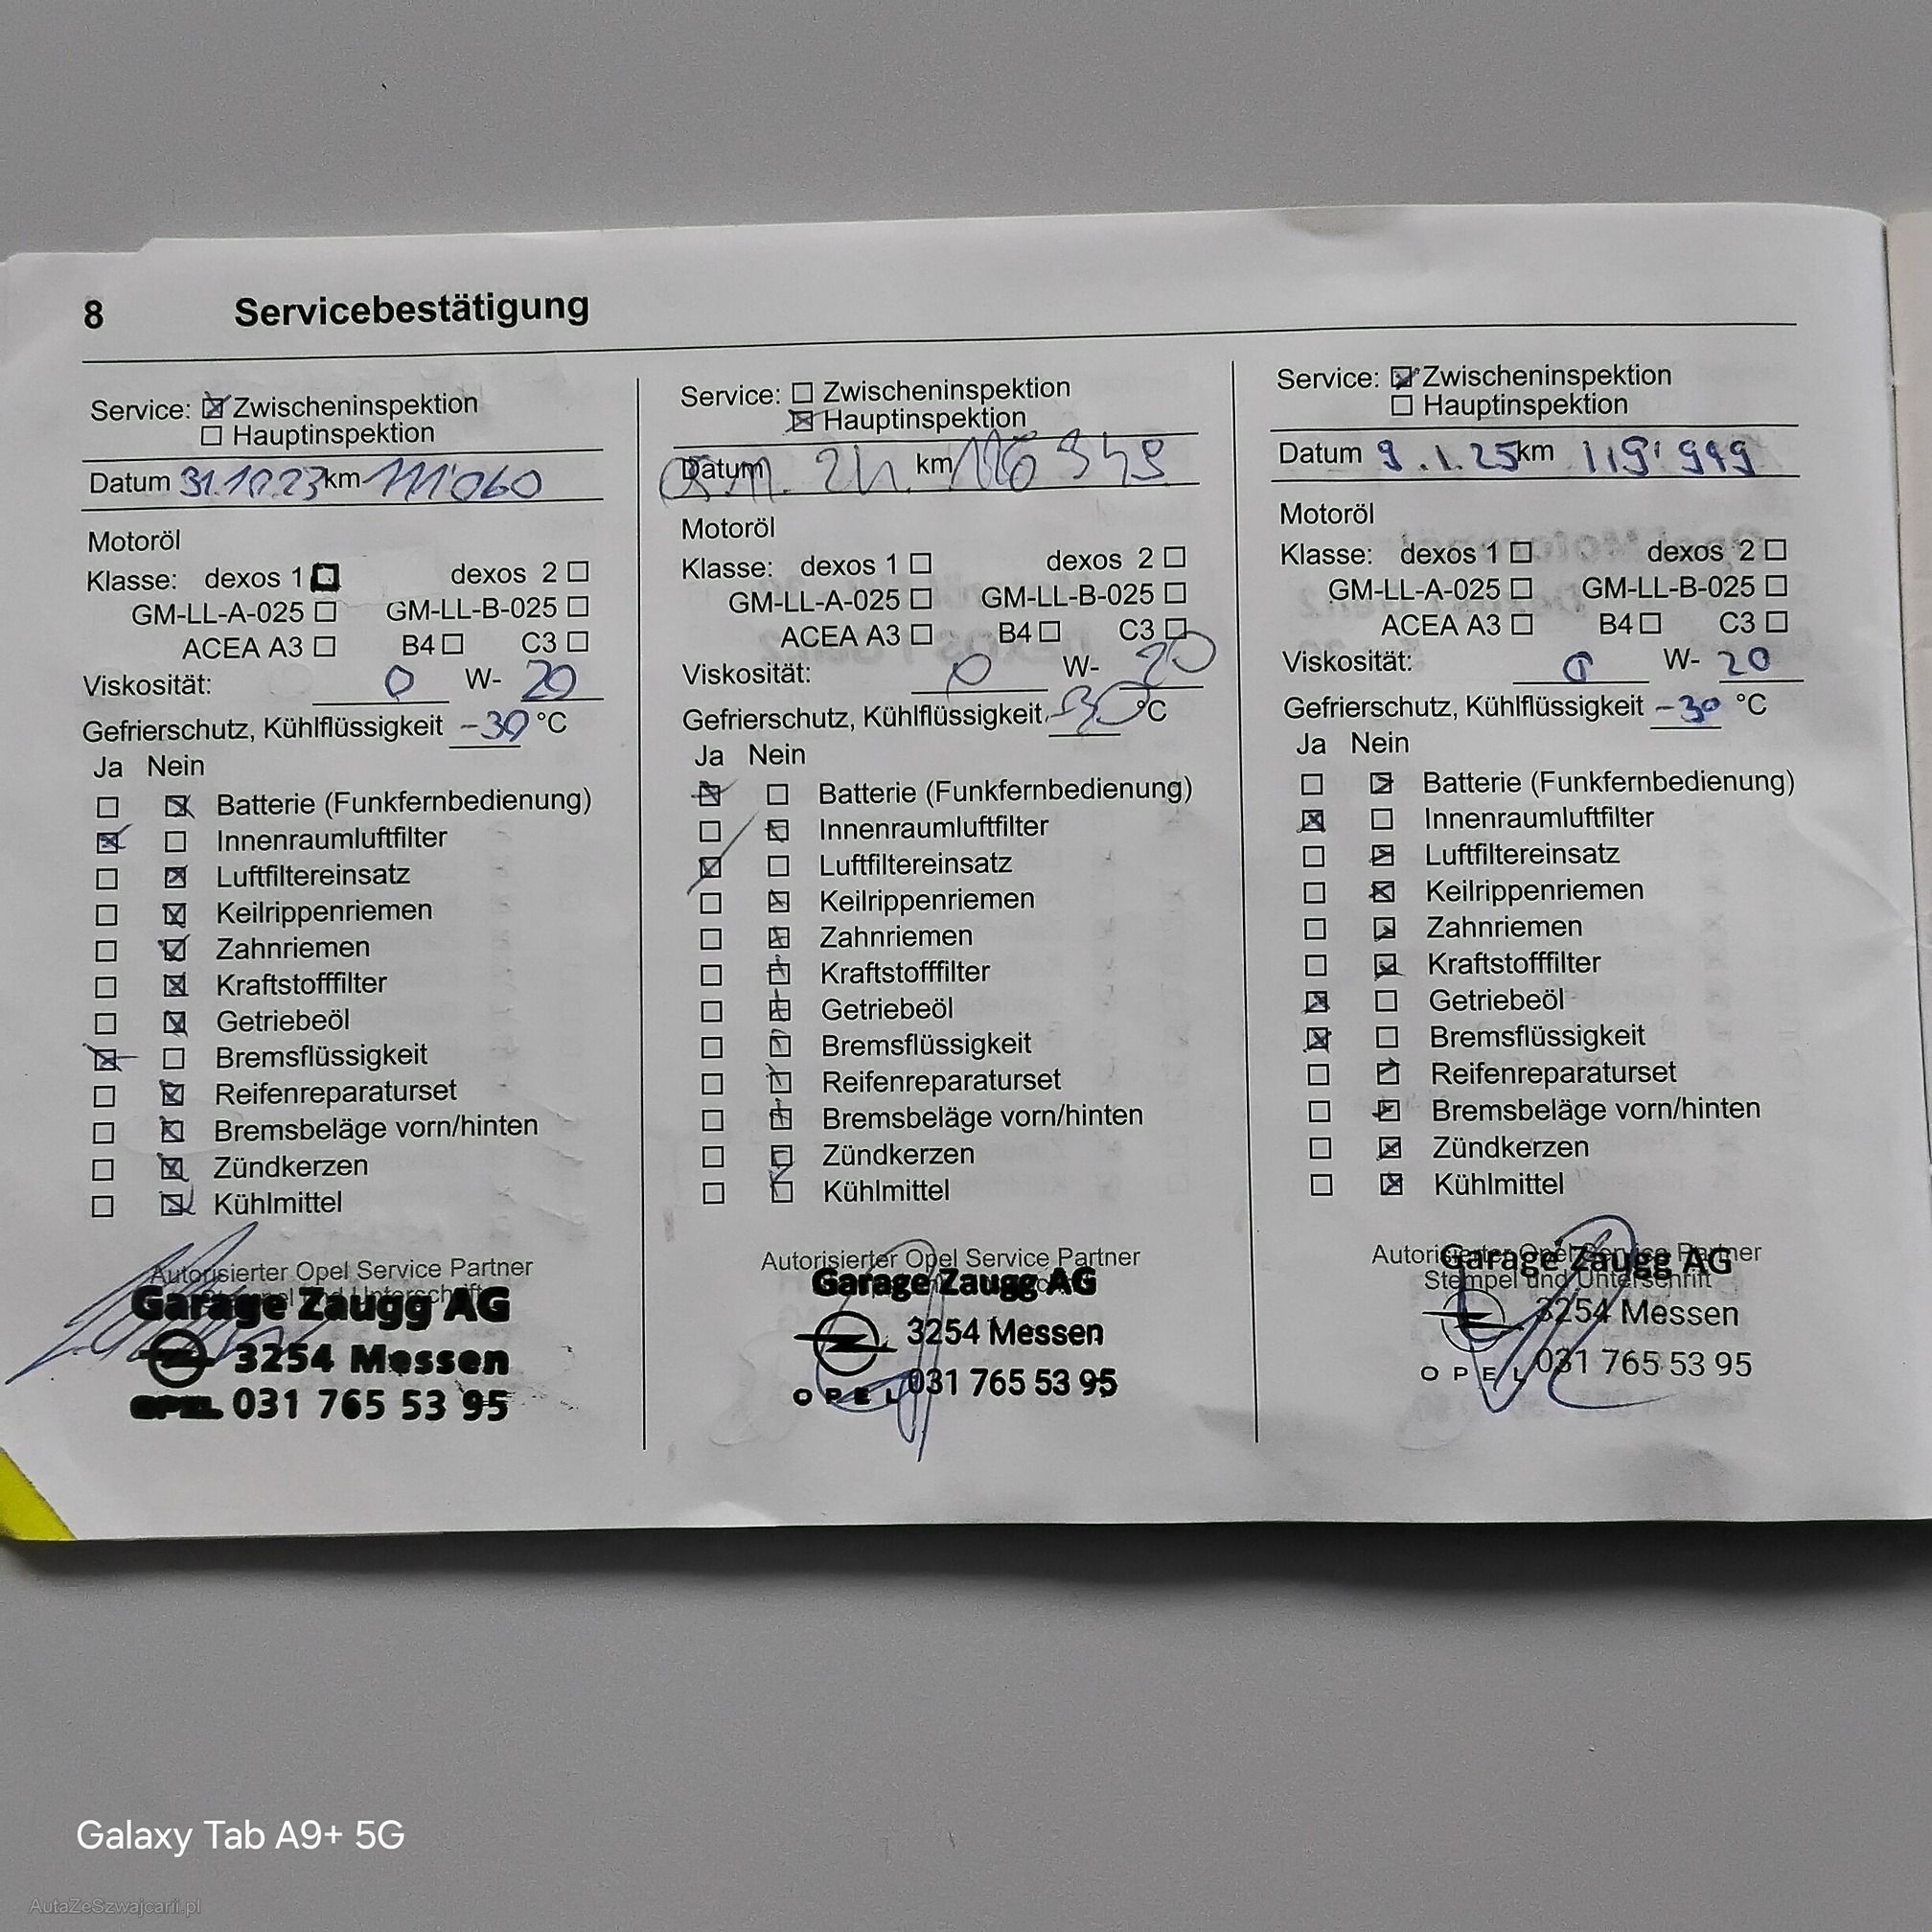 8 Servicebestätigung
Service: Zwischeninspektion
Hauptinspektion
Datum 31.10.23 km 111'060
Motoröl
Klasse: dexos 1 dexos 2
GM-LL-A-025 GM-LL-B-025
ACEA A3 B4 C3
Viskosität: 0 W- 20
Gefrierschutz, Kühlflüssigkeit -30 °C
Ja Nein
Batterie (Funkfernbedienung)
Innenraumluftfilter
Luftfiltereinsatz
Keilrippenriemen
Zahnriemen
Kraftstofffilter
Getriebeöl
Bremsflüssigkeit
Reifenreparaturset
Bremsbeläge vorn/hinten
Zündkerzen
Kühlmittel
Autorisierter Opel Service Partner
Stempel und Unterschrift
Garage Zaugg AG
3254 Messen
OPEL 031 765 53 95
Service: Zwischeninspektion
Hauptinspektion
Datum 11. 24. km
Motoröl
Klasse: dexos 1 dexos 2
GM-LL-A-025 GM-LL-B-025
ACEA A3 B4 C3
Viskosität: 0 W- 20
Gefrierschutz, Kühlflüssigkeit -30 °C
Ja Nein
Batterie (Funkfernbedienung)
Innenraumluftfilter
Luftfiltereinsatz
Keilrippenriemen
Zahnriemen
Kraftstofffilter
Getriebeöl
Bremsflüssigkeit
Reifenreparaturset
Bremsbeläge vorn/hinten
Zündkerzen
Kühlmittel
Autorisierter Opel Service Partner
Garage Zaugg AG
3254 Messen
OPEL 031 765 53 95
Service: Zwischeninspektion
Hauptinspektion
Datum 9.1.25 km 119'999
Motoröl
Klasse: dexos 1 dexos 2
GM-LL-A-025 GM-LL-B-025
ACEA A3 B4 C3
Viskosität: 0 W- 20
Gefrierschutz, Kühlflüssigkeit -30 °C
Ja Nein
Batterie (Funkfernbedienung)
Innenraumluftfilter
Luftfiltereinsatz
Keilrippenriemen
Zahnriemen
Kraftstofffilter
Getriebeöl
Bremsflüssigkeit
Reifenreparaturset
Bremsbeläge vorn/hinten
Zündkerzen
Kühlmittel
Autorisierter Opel Service Partner
Stempel und Unterschrift
Garage Zaugg AG
3254 Messen
OPEL 031 765 53 95
Galaxy Tab A9+ 5G
AutaZeSzwajcarii.pl